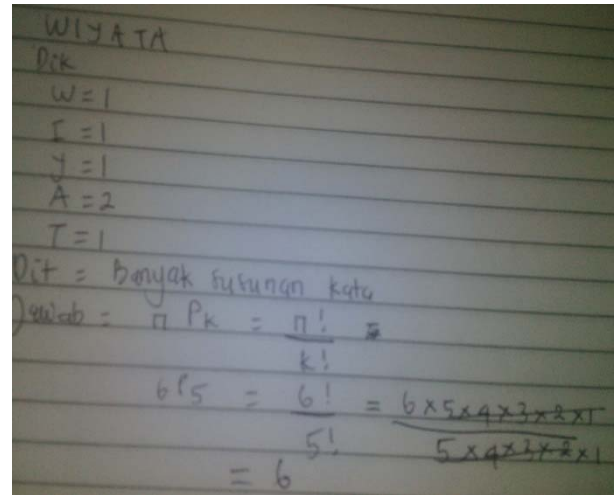 WIYATA
Dik
W = 1
I = 1
Y = 1
A = 2
T = 1
Dit = Banyak susunan kata
Jawab = n Pk = n! =
k!
6P5 = 6! = 6 x 5 x 4 x 3 x 2 x 1
5! 5 x 4 x 3 x 2 x 1
= 6